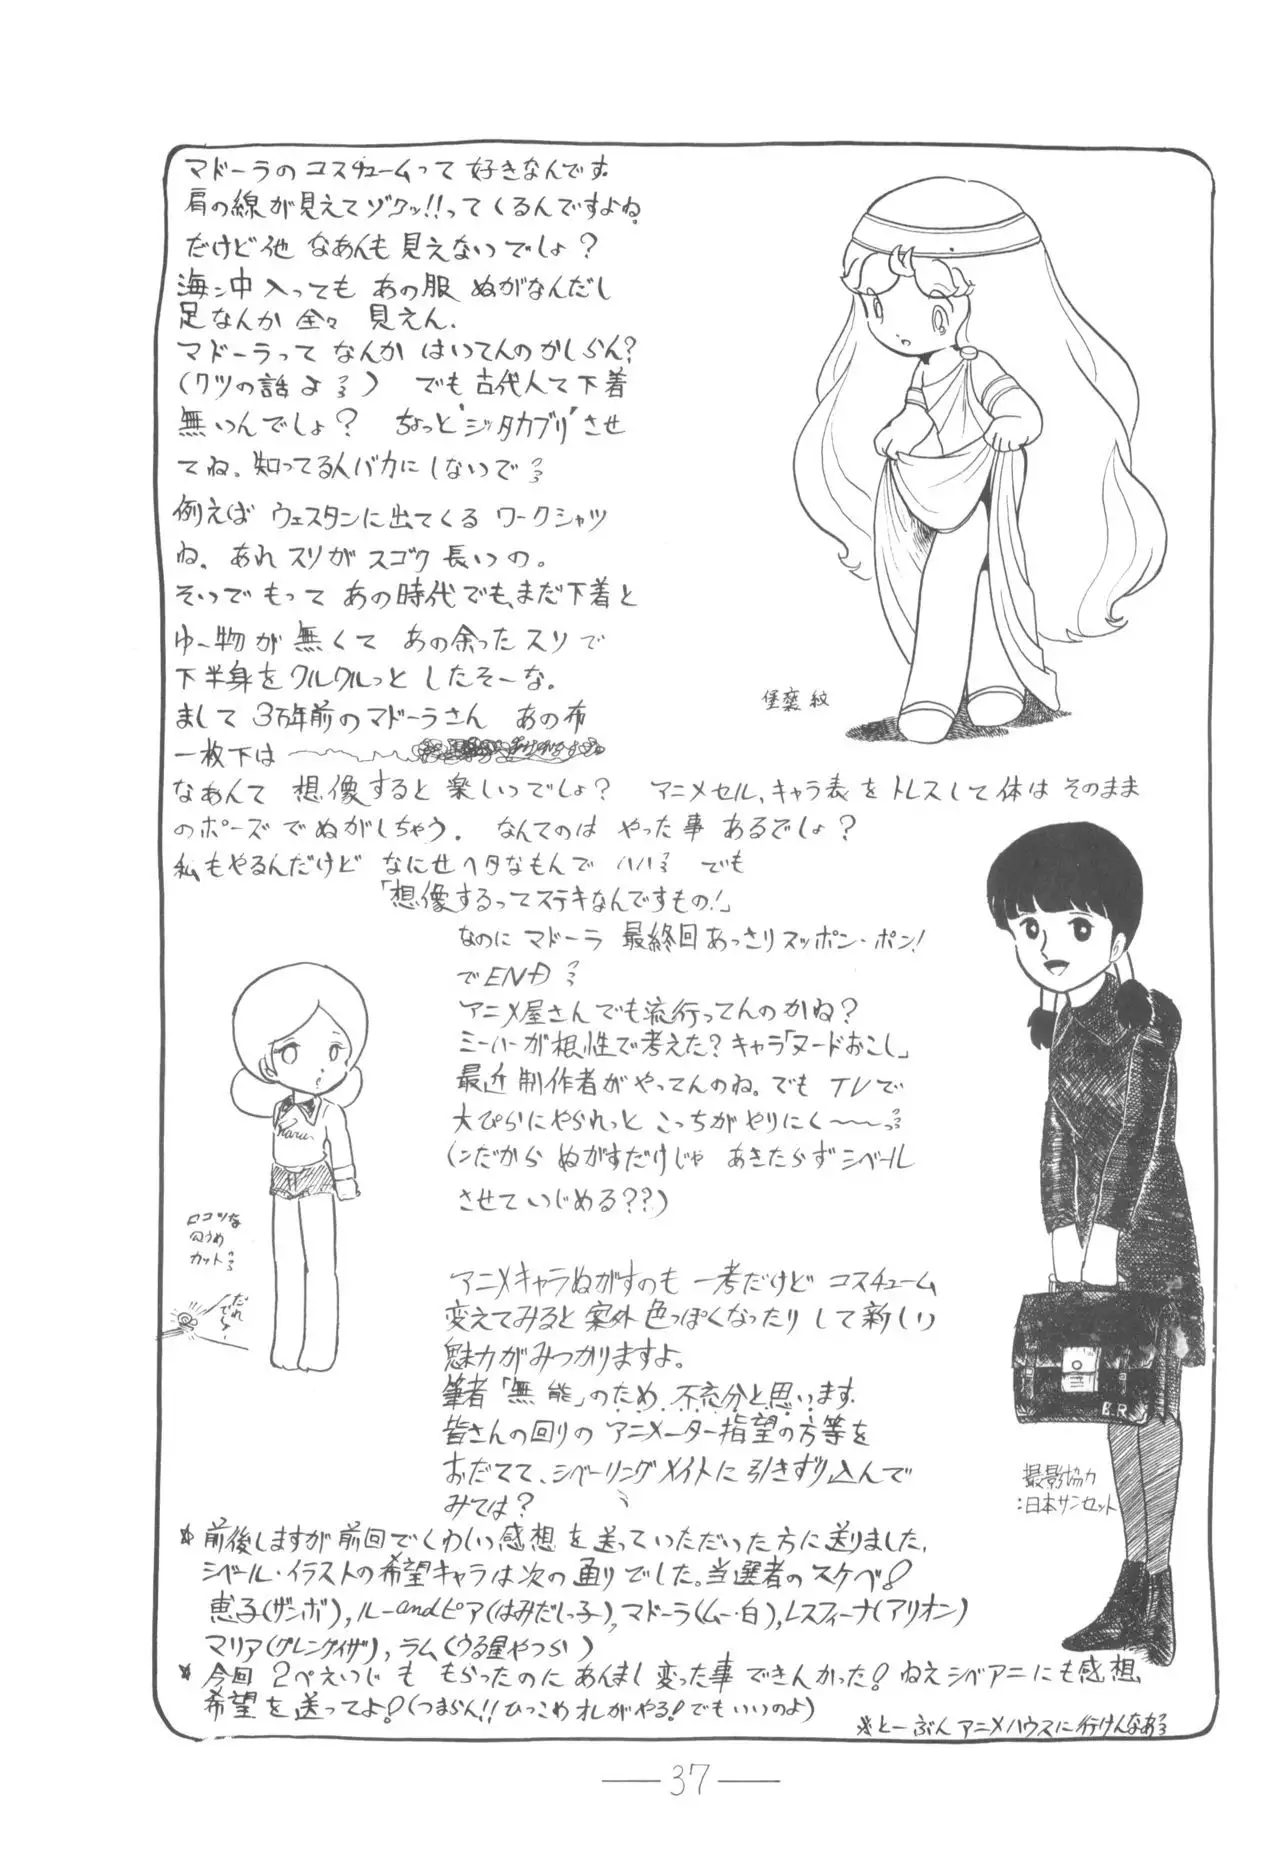 マドーラのコスチュームって好きなんです。
肩の線が見えてゾクッ!!ってくるんですよね。
だけど他 なあんも見えないでしょ?
海ン中入っても あの服 ぬがなんだし
足なんか 全々 見えん.
マドーラって なんか はいてんのかしらん?
(クツの話よ) でも古代人て下着
無いんでしょ? ちょっと"シッタカブリ"させ
てね。知ってる人バカにしないで
例えば ウェスタンに出てくる ワークシャツ
ね、あれスソがスゴク長いの。
そいでもって あの時代でも、まだ下着と
ゆー物が無くて あの余ったスソで
下半身をクルクルっと したそーな。
まして 3万年前のマドーラさん あの布
一枚下は
なあんて 想像すると楽しいでしょ? アニメセル、キャラ表をトレスして体はそのまま
のポーズでぬがしちゃう. なんてのは やった事あるでしょ?
私もやるんだけど なにせヘタなもんで でも
「想像するってステキなんですもの!」
なのに マドーラ 最終回あっさりスッポン・ポン!
でEND
アニメ屋さんでも流行ってんのかね?
ミーハーが根性で考えた?キャラ「ヌードおこし」
最近制作者がやってんのね。でも TVで
大ぴらにやられっと こっちがやりにく〜〜っ
(ンだから ぬがすだけじゃ あきたらずシベール
させていじめる??)
アニメキャラぬがすのも 一考だけど コスチューム
変えてみると案外色っぽくなったりして新しい
魅力がみつかりますよ。
筆者「無能」のため、不充分と思います.
皆さんの回りのアニメーター指望の方等を
おだてて、シベーリングメイトに引きずり込んで
みては?
堡
紋
Karu
ロコツな
穴うめ
カット
だれ
でぇ〜!
B.R.
撮影協力
:日本サンセット
*前後しますが前回でくわしい感想を送っていただいた方に送りました.
シベール・イラストの希望キャラは次の通りでした。当選者のスケベ!
恵子(ザンボ), ルーandピア(はみだしっ子), マドーラ(ムー・白), レスフィーナ(アリオン)
マリア(グレンダイザ), ラム(うる星やつら)
*今回 2ぺえいじも もらったのにあんまし変った事できんかった! ねえシベアニにも感想、
希望を送ってよ!(つまらん!!ひっこめオレがやる!でもいいのよ)
※とーぶんアニメハウスに行けんなあ
— 37 —